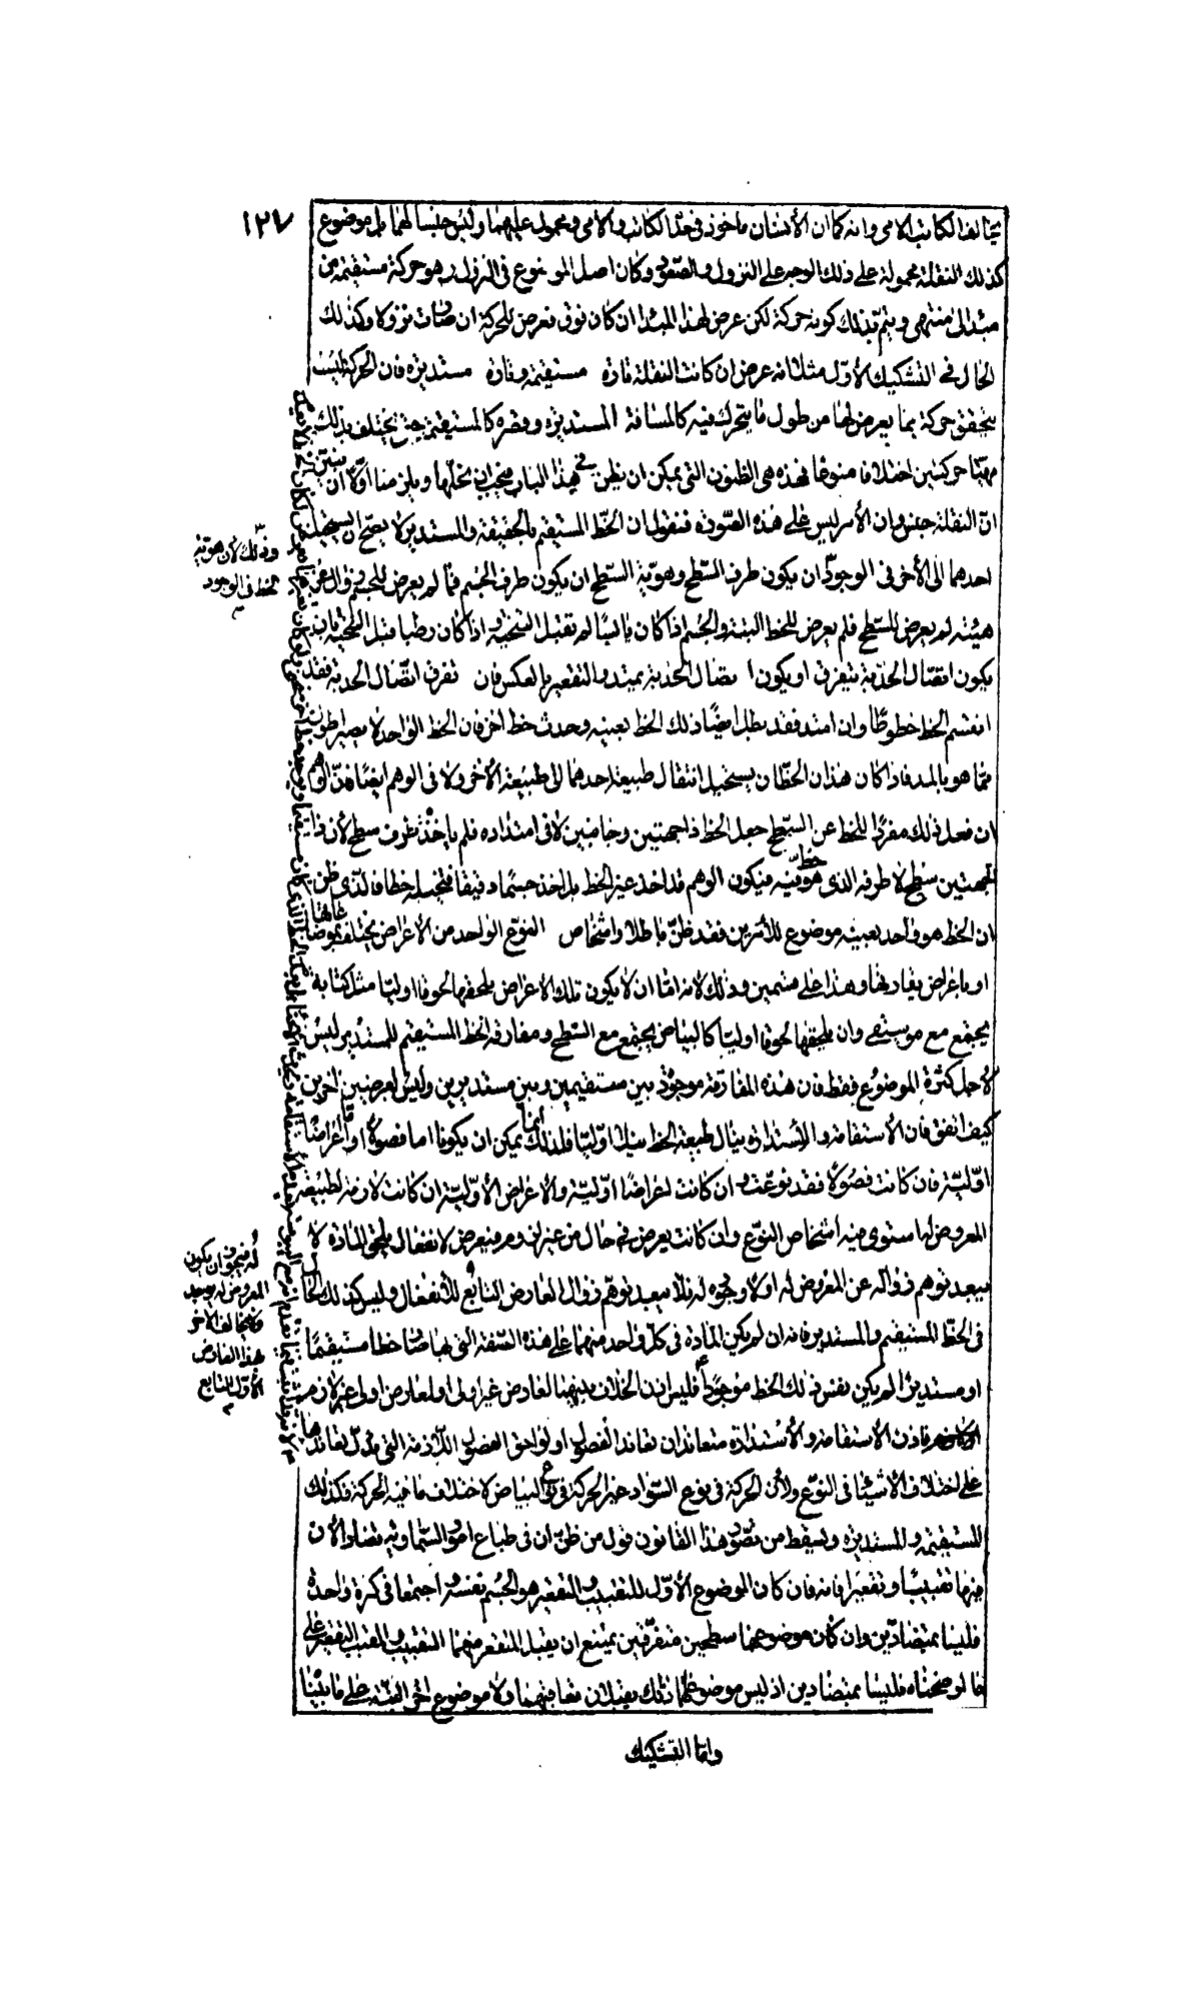 ١٢٧
يخالف الكاتب الامى وانه كما ان الأنسان ماخوذ فى هذا الكاتب والأمى ومحمول عليهما وليس جنسا لهما بل موضوع
كذلك النقلة محمولة على ذلك الوجه على النزول والصعود وكان اصل الموضوع فى النزول هو حركة مستقيمة من
مبدا الى منتهى ويتم بذلك كونه حركة لكن عرض لهذا المبدا ان كان فوق فعرض للحركة ان صارت نزولا وكذلك
الحال فى التشكيك الأول مثلا انه عرض ان كانت النقلة تارة مستقيمة وتارة مستديرة فان الحركة ليست
يتحقق حركة بما يعرض لها من طول ما يتحرك فيه كالمسافة المستديرة وقصره كالمستقيمة حتى يختلف بذلك
حركتين اختلافا منوعا فهذه هى الظنون التى يمكن ان يظن فى هذا الباب فيجب ان نحلها ويلزمنا اولا ان نبين
ان النقلة جنس وان الأمر ليس على هذه الصورة فنقول ان الخط المستقيم بالحقيقة والمستدير لا يصح ان يستحيل
احدهما الى الأخر فى الوجود ان يكون طرف السطح وهوية السطح ان يكون طرف الجسم فما لم يعرض للجسم زوال عن
هيئته لم يعرض للسطح فلم يعرض للخط البتة والجسم اذا كان يابسا لم تقبل التحنية واذا كان رطبا قبل التحنية فان
يكون اتصال الحدبة يتفرق او يكون اتصال الحدبة يمتد والتقعير بالعكس فان تفرق اتصال الحدبة فقد
انقسم الخط خطوطا وان امتد فقد بطل ايضا ذلك الخط بعينه وحدث خط اخر فان الخط الواحد لا يصير اطول
مما هو بالمد فاذا كان هذان الخطان يستحيل انتقال طبيعة احدهما الى طبيعة الأخر ولا فى الوهم ايضا فان الوهم
ان فعل ذلك مفردا للخط عن السطح جعل الخط ذا جهتين وجانبين لا فى امتداده فلم ياخذ طرف سطح لأن ذا
الجهتين سطح لا طرفه الذى هو خط فيكون الوهم قد اخذ غير الخط بل اخذ جسما دقيقا فتخيله خطا فالذى ظن
ان الخط هو واحد بعينه موضوع للأمرين فقد ظن باطلا واشخاص النوع الواحد من الأعراض يختلف بموضوعاتها
او باعراض يقارنها وهذا على قسمين وذلك لانه اما ان لا يكون تلك الأعراض يلحقها لحوقا اوليا مثل كتابة
يجتمع مع موسيقى وان يلحقها لحوقا اوليا كالبياض يجتمع مع السطح ومفارقة الخط المستقيم للمستدير ليس
لأجل كثرة الموضوع فقط فان هذه المفارقة موجودة بين مستقيمين وبين مستديرين وليس لعرضين اخرين
كيف اتفق فان الأستقامة والأستدارة ينال طبيعة الخط نيلا اوليا فلذلك ايضا يمكن ان يكونا اما فصولا او اعراضا
اولية فان كانت فصولا فقد نوعت وان كانت اعراضا اولية والاعراض الأولية ان كانت لازمة لطبيعة
المعروض لها استوى فيه اشخاص النوع وان كانت يعرض فى حال من غير لزوم فيعرض لانفعال يلحق المادة لا
يبعد توهم زواله عن المعروض له او لا وجوده له فلا يبعد توهم زوال العارض التابع للأنفعال وليس كذلك الحال
فى الخط المستقيم والمستدير فانه ان لم يكن المادة فى كل واحد منهما على هذه الصفة التى بها صار خطا مستقيما
او مستديرا لم يكن نفس ذلك الخط موجودا فليس اذن الخلاف بينهما لعارض غير اولى او لعارض اولى غير لازم
فاذن الأستقامة والأستدارة متعاندان تعاند الفصول او لواحق الفصول اللازمة التى يدل تعاندها
على اختلاف الأشياء فى النوع ولأن الحركة فى نوع السواد غير الحركة فى نوع البياض لاختلاف ما فيه الحركة فكذلك
المستقيمة والمستديرة ويسقط من تصور هذا القانون قول من ظن ان فى طباع امور السماوية تضادا لأن
فيها تقبيبا وتقعيرا فانه فان كان الموضوع الأول للتقبيب والتقعير هو الجسم نفسه واجتمعا فى كرة واحدة
فليسا بمتضادين وان كان موضوعهما سطحين متفرقين يمتنع ان يقبل المتقعر منهما التقبيب والمقبب التقعير على
ما اوضحناه فليسا بمتضادين اذ ليس موضوعهما ذلك يقبلان تعاقبهما ولا موضوع اخر البتة على ما بينا
واما التشكيك
وذلك لأن هوية
الخط فى الوجود
له فيجوز ان يكون
المعروض له يوجد
ولا يخالف الأخر
بهذا العارض
الأول التابع